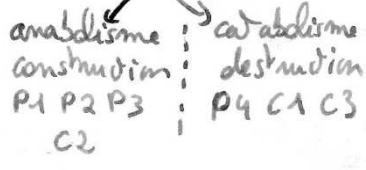 anabolisme
construction
P1 P2 P3
C2
catabolisme
destruction
P4 C1 C3